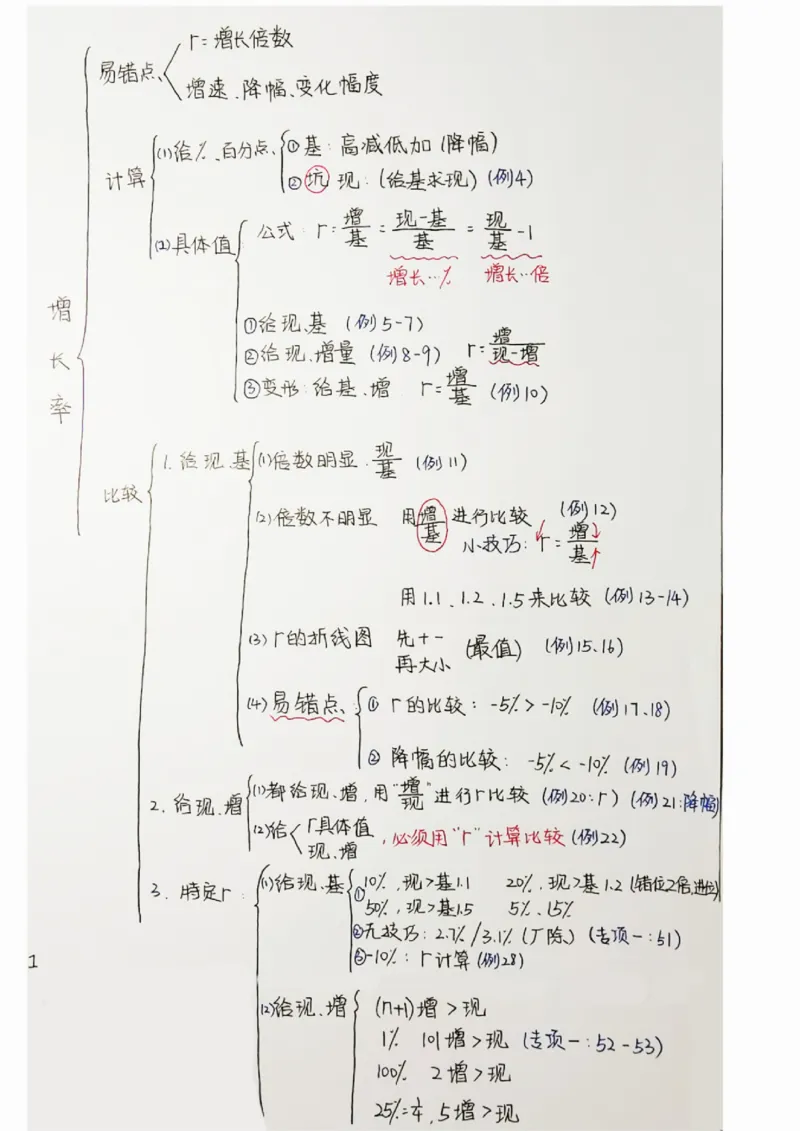 增长率
易错点、
r=增长倍数
增速、降幅、变化幅度
计算
(1)给%、百分点、
①基:高减低加(降幅)
②坑 现:(给基求现)(例4)
(2)具体值
公式: r=增/基=现-基/基=现/基-1
增长…% 增长…倍
①给现、基 (例5-7)
②给现、增量 (例8-9) r=增/现-增
③变形:给基、增 r=增/基 (例10)
比较
1. 给现、基
(1)倍数明显、现/基 (例11)
(2)倍数不明显 用增/基进行比较 (例12)
小技巧: r=增↓/基↑
用1.1、1.2、1.5来比较 (例13-14)
(3) r的折线图 先+- 再大小 (最值) (例15、16)
(4)易错点、:
① r的比较: -5%>-10% (例17、18)
② 降幅的比较: -5%<-10% (例19)
2. 给现、增
(1)都给现、增,用"增/现"进行r比较 (例20:r) (例21:降幅)
(2)给
r具体值
现、增
,必须用"r"计算比较 (例22)
3. 特定r:
(1)给现、基
① 10%,现>基1.1 20%,现>基1.2 (错位2倍,进位)
50%,现>基1.5 5%、15%
②无技巧: 2.7%/3.1% (厂除) (专项一:51)
③-10%: r计算 (例28)
(2)给现、增
(n+1)增>现
1% 101增>现 (专项一:52-53)
100% 2增>现
25%=1/4,5增>现
1